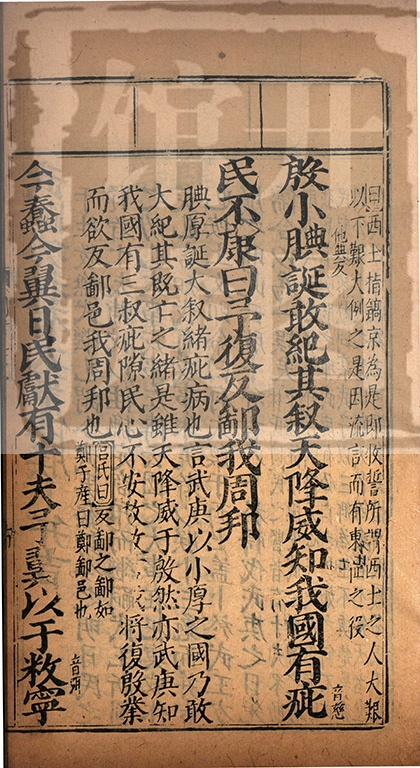 曰西土指鎬京為是即牧誓所謂西土之人大艱
以下艱大例之是因流言而有東土之役
殷小腆他典反誕敢紀其叙天降威知我國有疵音慈
民不康曰予復反鄙我周邦
腆厚誕大叙緒疵病也言武庚以小厚之國乃敢
大紀其既亡之緒是雖天降威于殷然亦武庚知
我國有三叔疵隙民心不安故將復殷業
而欲反鄙邑我周邦也呂氏曰反鄙之鄙如
鄭子産曰鄭鄙邑也
今蠢今翼日民獻有十夫予翼以于敉音弭寧